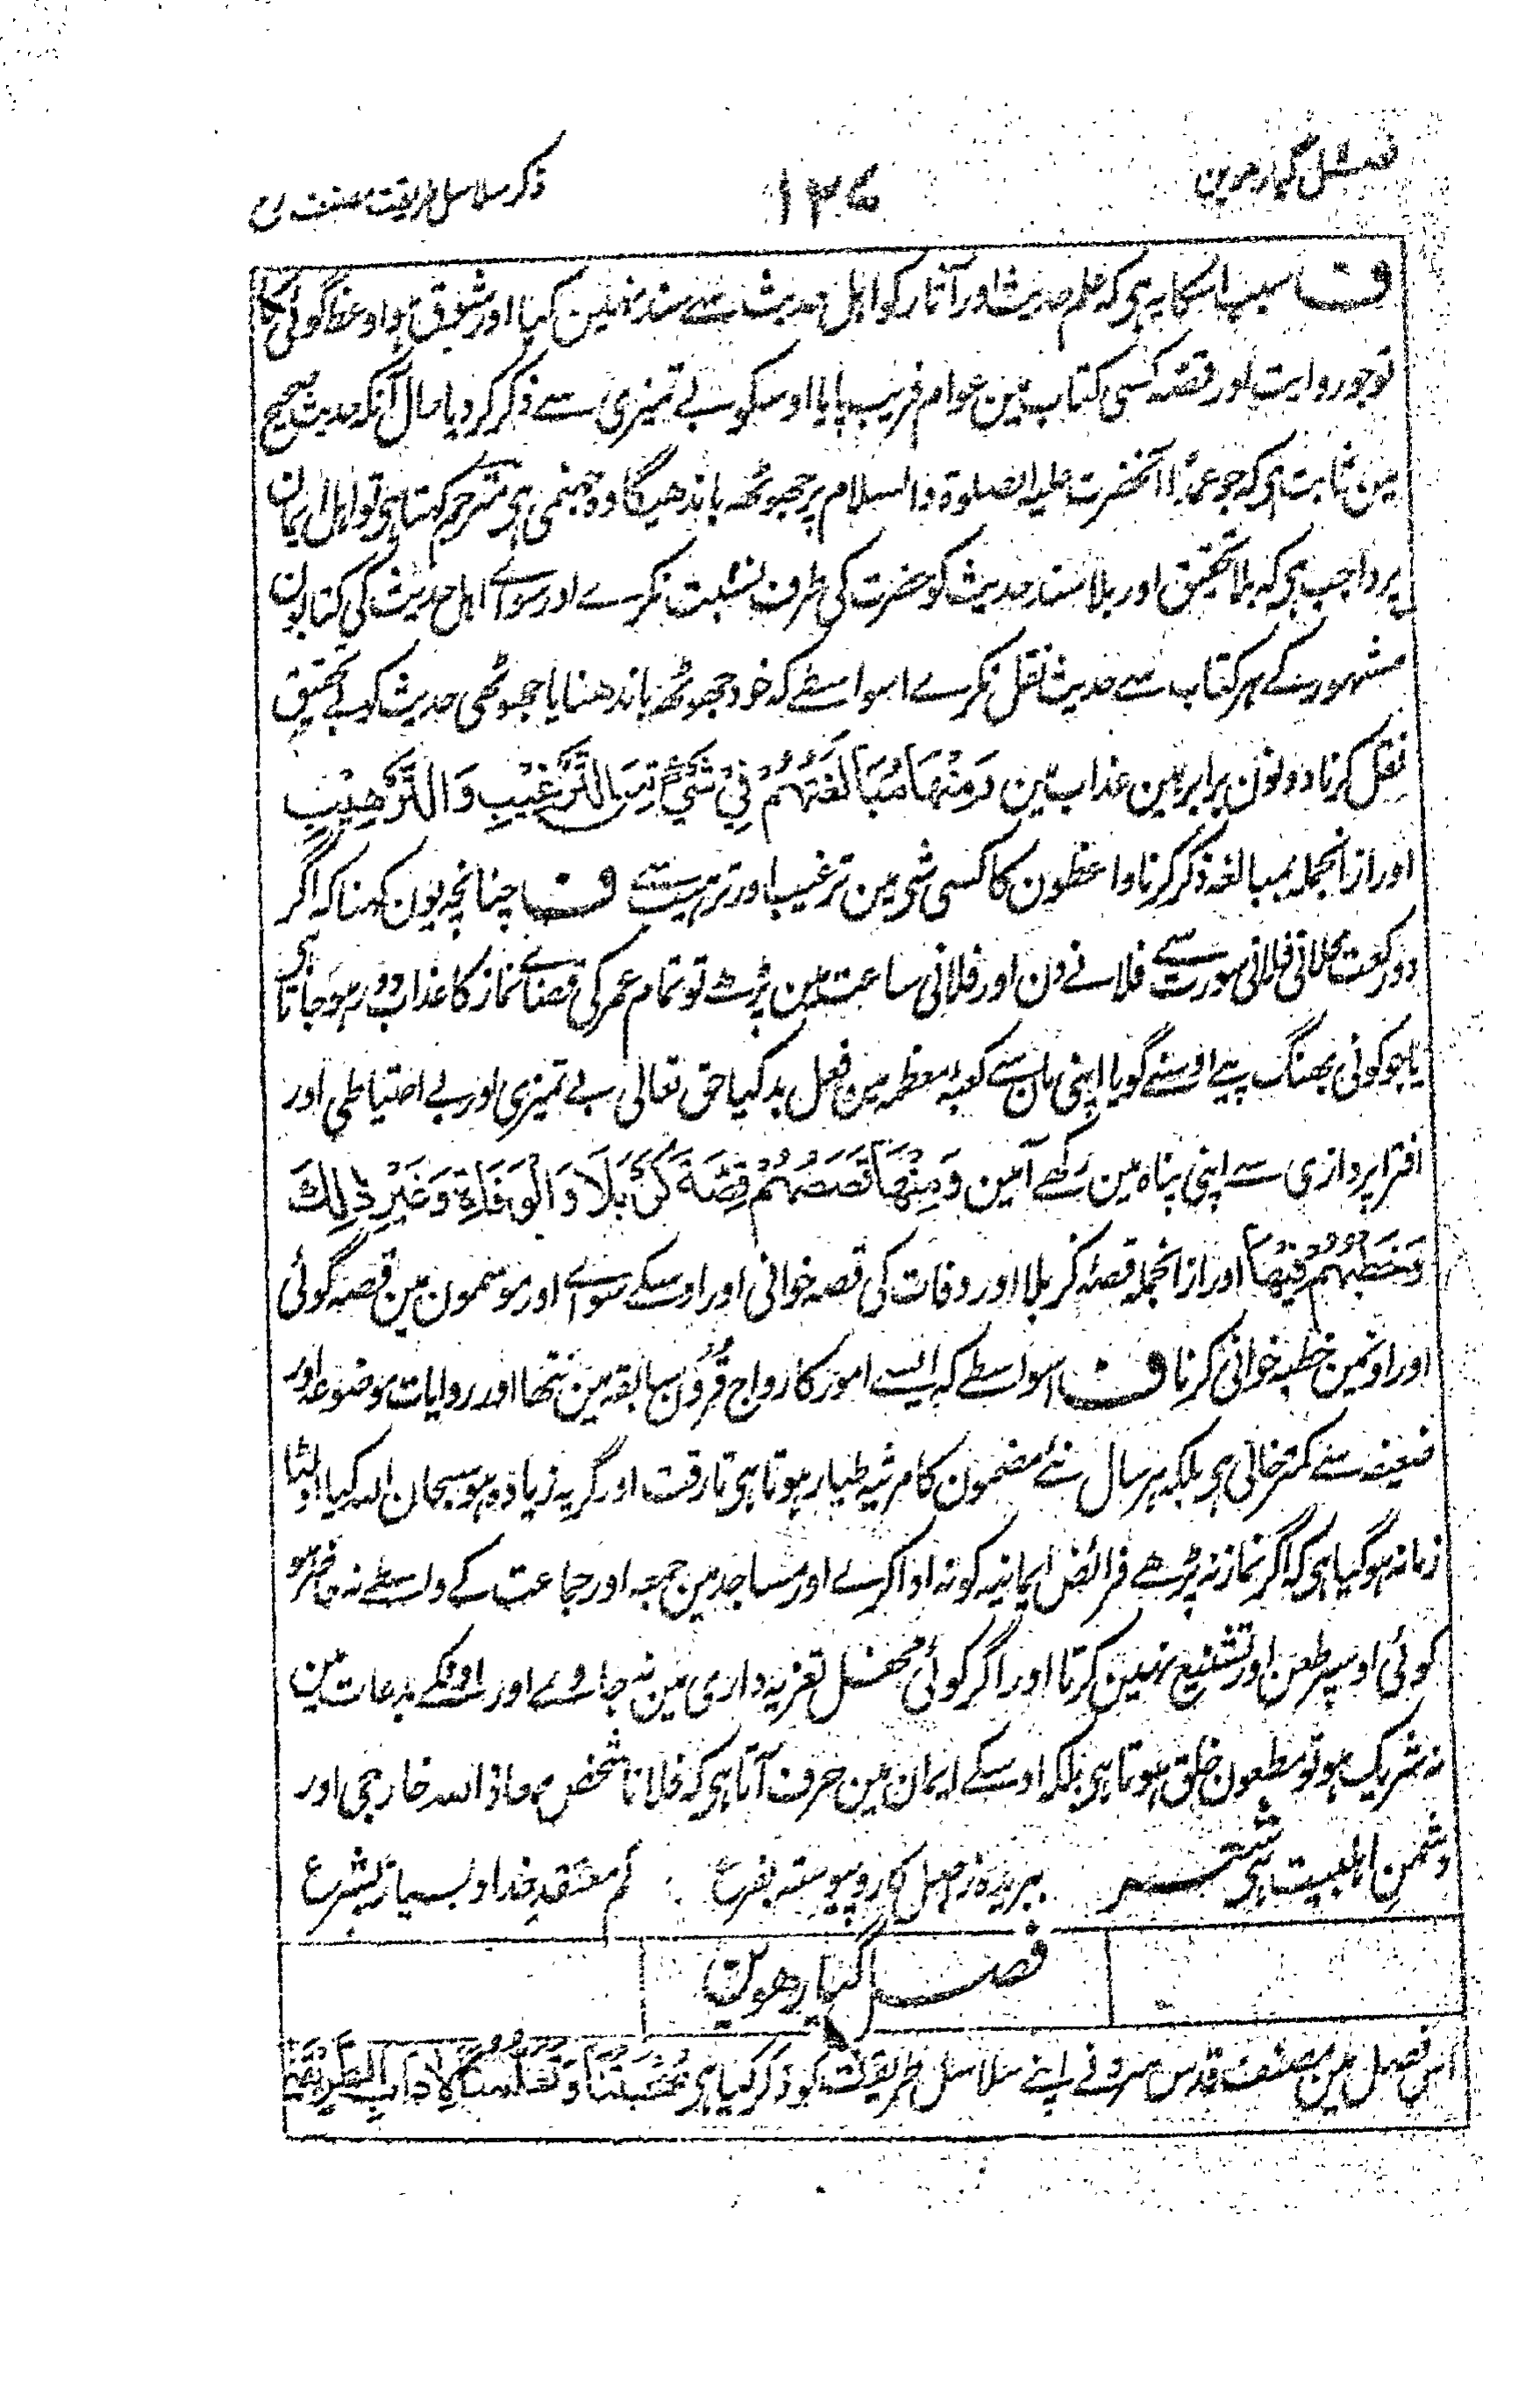 فصل گیارھوین
۱۲۷
ذکر سلاسل طریقت مصنف رح
ف سبب اسکا یہ ہی کہ علم حدیث اور آثار کو اہل حدیث سے سند نہین کیا اور شوق ہوا وعظ گوئی کا
تو جو روایت اور قصہ کسی کتاب مین عوام فریب پایا اوسکو بے تمیزی سے ذکر کر دیا حال آنکہ حدیث صحیح
مین ثابت ہی کہ جو عمدًا آنحضرت علیہ الصلوۃ والسلام پر جھوٹھ باندھیگا وہ جہنمی ہی مترجم کہتا ہی تو اہل ایمان
پر واجب ہی کہ بلا تحقیق اور بلا سند حدیث کو حضرت کی طرف نسبت نکرے اور سواے اہل حدیث کی کتابون
مشہورہ کے ہر کتاب سے حدیث نقل نکرے اسواسطے کہ خود جھوٹھ باندھنا یا جھوٹھی حدیث کو بے تحقیق
نقل کرنا دونون برابر ہین عذاب مین وَمِنْهَا مُبَالَغَتُهُمْ فِيْ شَيْءٍ مِّنَ التَّرْغِيْبِ وَالتَّرْهِيْبِ
اور ازانجملہ مبالغہ ذکر کرنا واعظون کا کسی شی مین ترغیب اور ترہیب سے ف چنانچہ یون کہنا کہ اگر
دو رکعت فلانی فلانی سورت سے فلانے دن اور فلانی ساعت مین پڑھے تو تمام عمر کی قضاے نماز کا عذاب دور ہو جاتا ہی
یا جو کوئی بھنگ پیے اوسنے گویا اپنی مان سے کعبہ معظمہ مین فعل بد کیا حق تعالی بے تمیزی اور بے احتیاطی اور
افترا پردازی سے اپنی پناہ مین رکھے آمین وَمِنْهَا قَصَصُهُمْ قِصَّةَ كَرْبَلَا وَالْوَفَاةِ وَغَيْرِ ذٰلِكَ
وَخُطَبُهُمْ فِيْهَا اور ازانجملہ قصۂ کربلا اور وفات کی قصہ خوانی اور اوسکے سواے اور موسمون مین قصہ گوئی
اور اونمین خطبہ خوانی کرنا ف اسواسطے کہ ایسے امور کا رواج قُرُون سابقہ مین نتھا اور روایات موضوعہ اور
ضعیفہ سے کمتر خالی ہی بلکہ ہر سال نئے مضمون کا مرثیہ طیار ہوتا ہی تا رقت اور گریہ زیادہ ہو سبحان اللہ کیا اولٹا
زمانہ ہو گیا ہی کہ اگر نماز نہ پڑھے فرائض ایمانیہ کو نہ ادا کرے اور مساجد مین جمعہ اور جماعت کے واسطے نہ حاضر ہو
کوئی اوسپر طعن اور تشنیع نہین کرتا اور اگر کوئی محفل تعزیہ داری مین نہ جاوے اور اونکے بدعات مین
نہ شریک ہو تو مطعون خلق ہوتا ہی بلکہ اوسکے ایمان مین حرف آتا ہی کہ فلانا شخص معاذ اللہ خارجی اور
دشمن اہلبیت ہی شعر ببریدہ ز اصل کار و پیوستہ بفرع کم معتقد خدا و بسیار بشرع
فصل گیارھوین
اس فصل مین مصنف قدس سرہ نے اپنے سلاسل طریقت کو ذکر کیا ہی صُحْبَتُنَا وَتَعَلُّمُنَا لِاٰدَابِ الطَّرِيْقَةِ